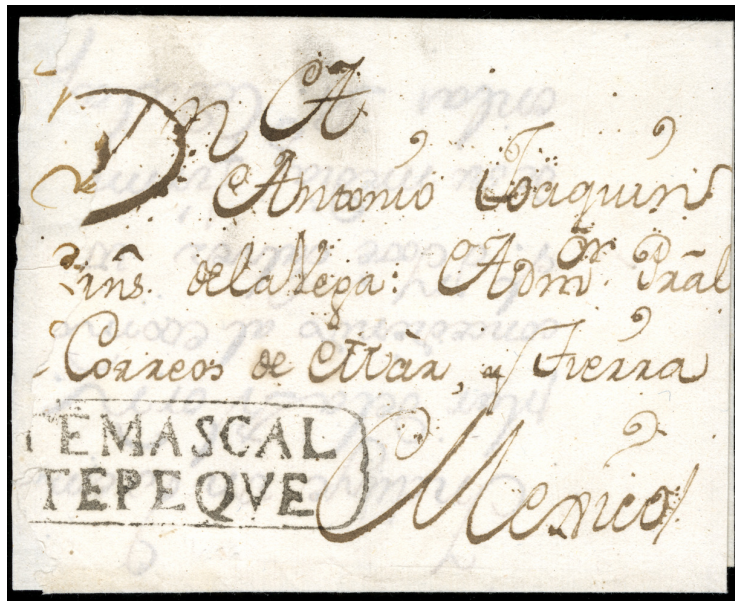 A
Dn Antonio Joaquin
inŝ. de la Vega: Admor. Prāl
Correos de Mar, y Tierra
TEMASCAL
TEPEQVE
Mexico